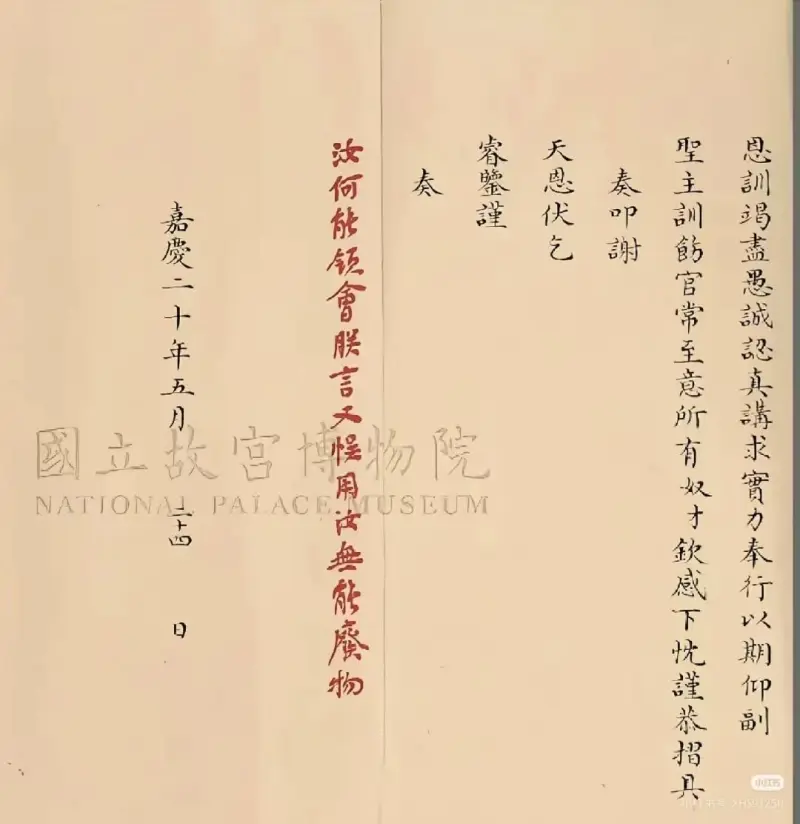 恩訓竭盡愚誠認真講求實力奉行以期仰副
聖主訓飭官常至意所有奴才欽感下忱謹恭摺具
奏叩謝
天恩伏乞
睿鑒謹
奏
汝何能領會朕言又悮用汝無能廢物
嘉慶二十年五月 二十四 日
國立故宮博物院
NATIONAL PALACE MUSEUM
小红书